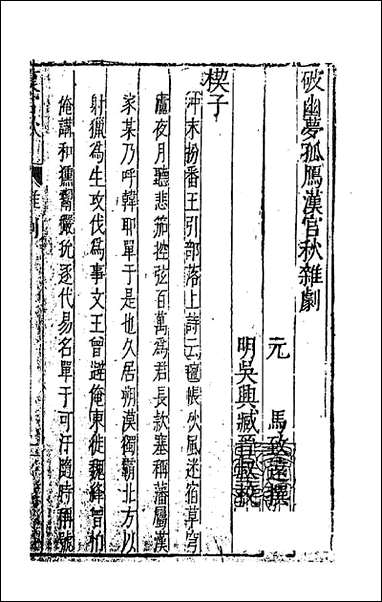 破幽夢孤鴈漢宮秋雜劇
元　馬致遠撰
明吳興臧晉叔校
楔子
沖末扮番王引部落上詩云氊帳秋風迷宿草穹
廬夜月聽悲笳控弦百萬爲君長欵塞稱藩屬漢
家某乃呼韓耶單于是也久居朔漠獨霸北方以
射獵爲生攻伐爲事文王曾避俺東徙魏絳曾怕
俺講和獯鬻玁狁逐代易名單于可汗隨時稱號